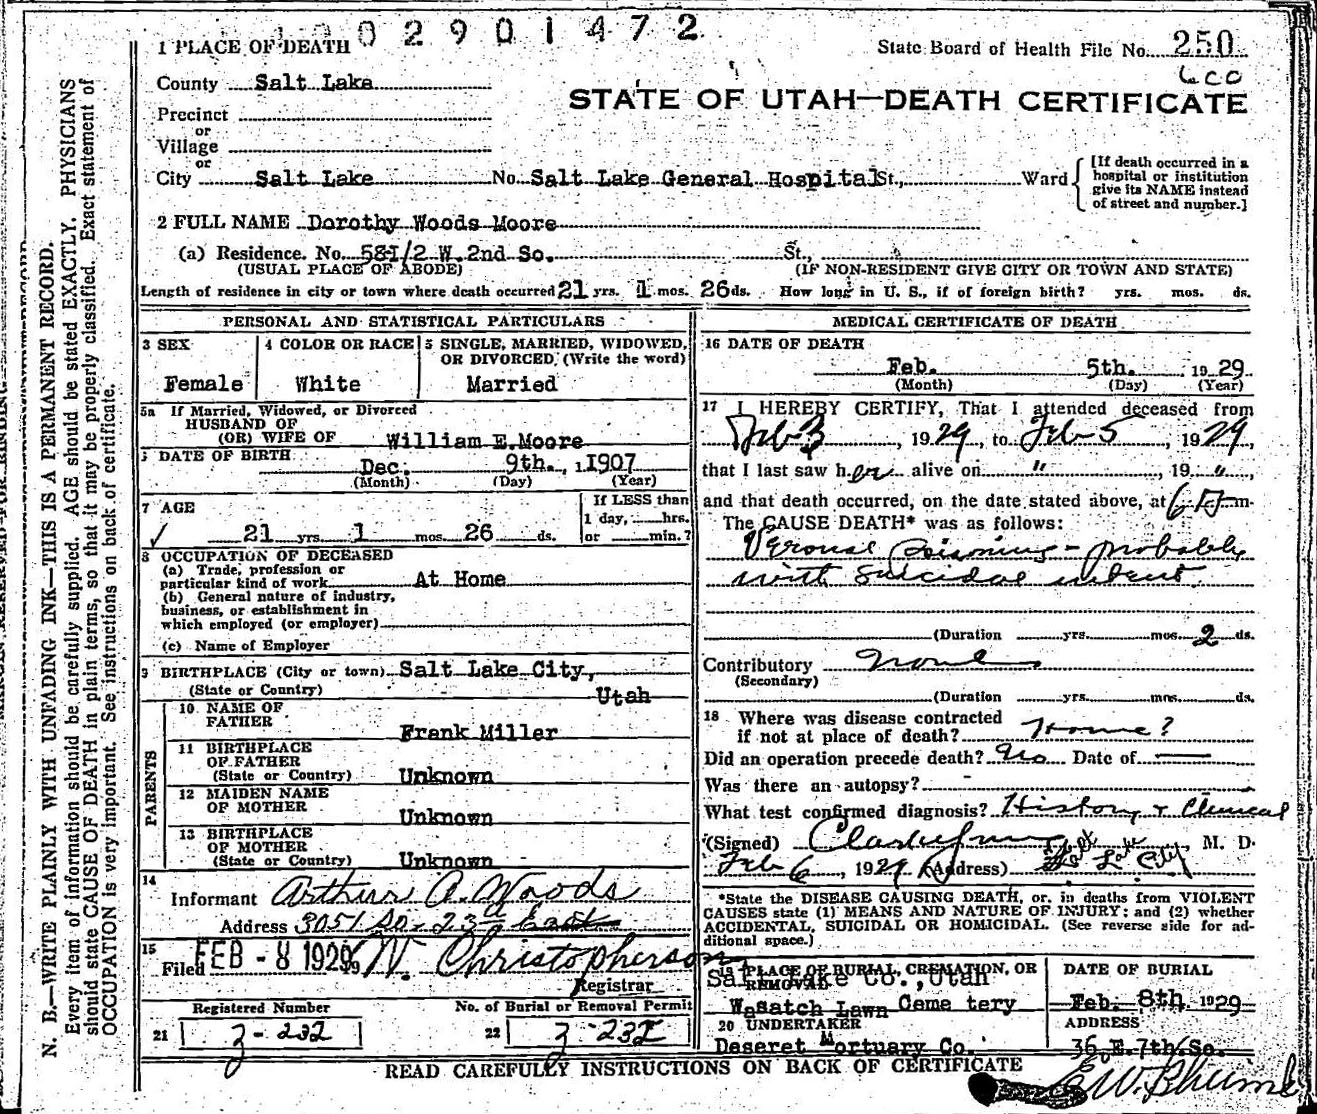 1002901472
1 PLACE OF DEATH
State Board of Health File No. 250
600
County Salt Lake
STATE OF UTAH—DEATH CERTIFICATE
Precinct
or
Village
or
City Salt Lake No. Salt Lake General Hospital St., Ward
[If death occurred in a hospital or institution give its NAME instead of street and number.]
2 FULL NAME Dorothy Woods Moore
(a) Residence. No. 581/2 W. 2nd So. St.,
(USUAL PLACE OF ABODE) (IF NON-RESIDENT GIVE CITY OR TOWN AND STATE)
Length of residence in city or town where death occurred 21 yrs. 1 mos. 26 ds. How long in U. S., if of foreign birth? yrs. mos. ds.
PERSONAL AND STATISTICAL PARTICULARS
3 SEX
Female
4 COLOR OR RACE
White
5 SINGLE, MARRIED, WIDOWED,
OR DIVORCED. (Write the word)
Married
5a If Married, Widowed, or Divorced
HUSBAND OF
(OR) WIFE OF William E. Moore
DATE OF BIRTH
Dec. 9th., 1907
(Month) (Day) (Year)
7 AGE
21 yrs. 1 mos. 26 ds.
If LESS than
1 day, hrs.
or min.?
8 OCCUPATION OF DECEASED
(a) Trade, profession or
particular kind of work At Home
(b) General nature of industry,
business, or establishment in
which employed (or employer)
(c) Name of Employer
9 BIRTHPLACE (City or town) Salt Lake City,
(State or Country) Utah
PARENTS
10 NAME OF
FATHER Frank Miller
11 BIRTHPLACE
OF FATHER
(State or Country) Unknown
12 MAIDEN NAME
OF MOTHER Unknown
13 BIRTHPLACE
OF MOTHER
(State or Country) Unknown
14
Informant Arthur A. Woods
Address 3051 So. 23d East
15
Filed FEB - 8 1929 N. Christopherson
Registrar
Registered Number
21 3-232
No. of Burial or Removal Permit
22 3-232
MEDICAL CERTIFICATE OF DEATH
16 DATE OF DEATH
Feb. 5th. 1929
(Month) (Day) (Year)
17 I HEREBY CERTIFY, That I attended deceased from
Feb 3, 1929, to Feb 5, 1929,
that I last saw her alive on " , 19 " ,
and that death occurred, on the date stated above, at 6 m
The CAUSE DEATH* was as follows:
Veronal Poisoning - probably
with suicidal intent
(Duration yrs. mos. 2 ds.
Contributory None
(Secondary)
(Duration yrs. mos. ds.
18 Where was disease contracted
if not at place of death? Home?
Did an operation precede death? No Date of —
Was there an autopsy? -
What test confirmed diagnosis? History & Clinical
(Signed) M. D.
Feb 6, 1929 (Address) Salt Lake City
*State the DISEASE CAUSING DEATH, or, in deaths from VIOLENT
CAUSES state (1) MEANS AND NATURE OF INJURY: and (2) whether
ACCIDENTAL, SUICIDAL OR HOMICIDAL. (See reverse side for ad-
ditional space.)
19 PLACE OF BURIAL, CREMATION, OR
REMOVAL
Salt Lake Co., Utah
Wasatch Lawn Ceme tery
DATE OF BURIAL
Feb. 8th. 1929
20 UNDERTAKER
Deseret Mortuary Co.
ADDRESS
36 E. 7th So.
READ CAREFULLY INSTRUCTIONS ON BACK OF CERTIFICATE
N. B.—WRITE PLAINLY WITH UNFADING INK—THIS IS A PERMANENT RECORD.
Every item of information should be carefully supplied. AGE should be stated EXACTLY. PHYSICIANS
should state CAUSE OF DEATH in plain terms, so that it may be properly classified. Exact statement of
OCCUPATION is very important. See instructions on back of certificate.
MARGIN RESERVED FOR BINDING